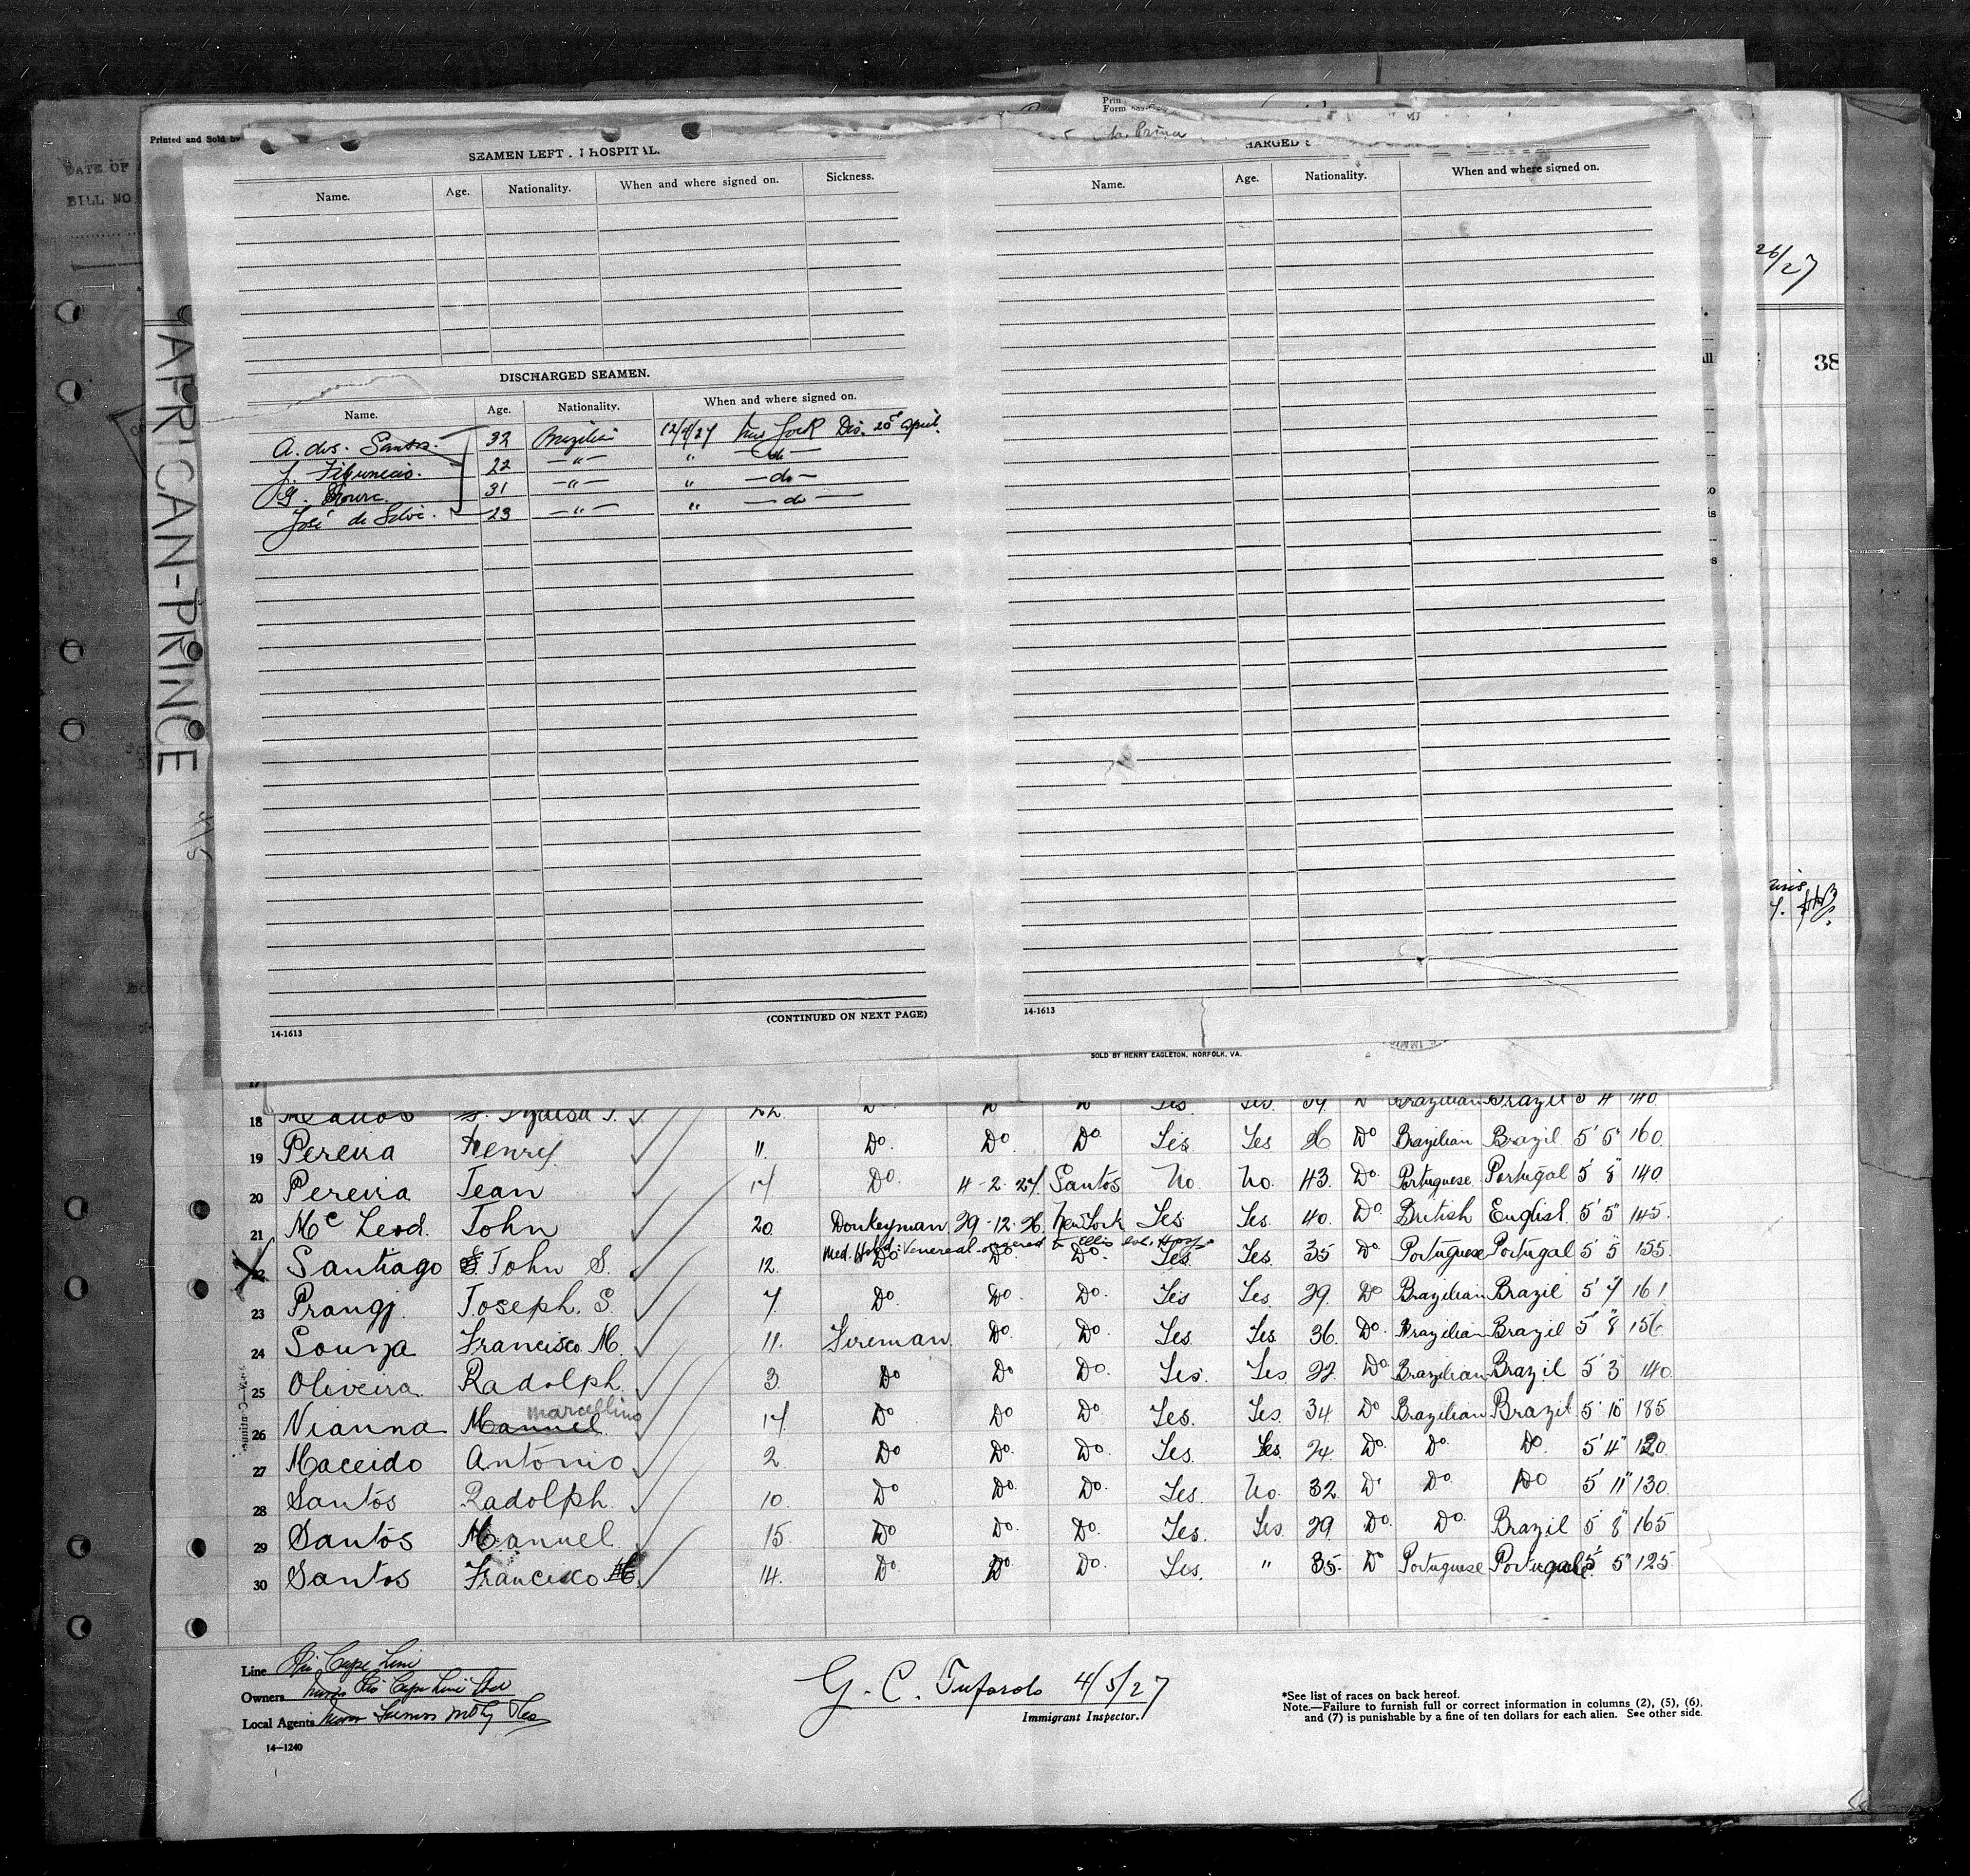 Printed and Sold by
Prin
Form
DATE OF
BILL NO
SEAMEN LEFT HOSPITAL.
Name. Age. Nationality. When and where signed on. Sickness.
HARGED
Name. Age. Nationality. When and where signed on.
26/27
38
AFRICAN-PRINCE
DISCHARGED SEAMEN.
Name. Age. Nationality. When and where signed on.
A. dos. Santos. 32 Brazilian 12/4/27 New York Dis. 25 April.
J. 22 —"— " —do—
G. 31 —"— " —do—
José de Silva. 23 —"— " —do—
(CONTINUED ON NEXT PAGE)
14-1613
14-1613
SOLD BY HENRY EAGLETON, NORFOLK, VA.
17
18 22 Brazilian Brazil 5 4 140
19 Pereira Henry 11. Do. Do. Do. Yes Yes 26 Do Brazilian Brazil 5' 5" 160
20 Pereira Jean 17 Do. 4-2-27 Santos No. No. 43. Do. Portuguese Portugal 5' 8" 140
21 Mc Leod. John 20. Donkeyman 29-12-26 New York Yes Yes. 40. Do. British English 5' 5" 145.
Med. Hold: Venereal ordered to Ellis Isl. Hosp.
22 Santiago John S. 12. Do Do. Do. Yes. Yes. 35 Do. Portuguese Portugal 5' 5 155.
23 Prangj. Joseph. S. 7. Do. Do. Do. Yes Yes. 29. Do Brazilian Brazil 5' 7 161
24 Souza Francisco M. 11. Fireman Do. Do. Yes. Yes. 36. Do. Brazilian Brazil 5' 8" 156
25 Oliveira. Radolph. 3. Do Do Do. Yes. Yes. 22 Do Brazilian Brazil 5' 3 140.
marcellino
26 Vianna Manuel 17. Do Do Do. Yes. Yes. 34 Do Brazilian Brazil 5' 10" 185
27 Maceido Antonio 2 Do Do. Do. Yes. Yes. 24. Do. Do. Do. 5' 4" 120.
28 Santos Radolph 10. Do Do. Do. Yes. No. 32. Do Do. Do 5' 11" 130.
29 Santos Manuel 15. Do Do. Do. Yes. Yes. 29 Do. Do. Brazil 5' 8" 165
30 Santos Francisco 14. Do. Do. Do. Yes. " 35. Do Portuguese Portugal 5' 5" 125
Line Rio Cape Line
Owners Rio Cape Line
Local Agents
14—1240
G. C. Tufarolo 4/5/27
Immigrant Inspector.
*See list of races on back hereof.
Note.—Failure to furnish full or correct information in columns (2), (5), (6),
and (7) is punishable by a fine of ten dollars for each alien. See other side.